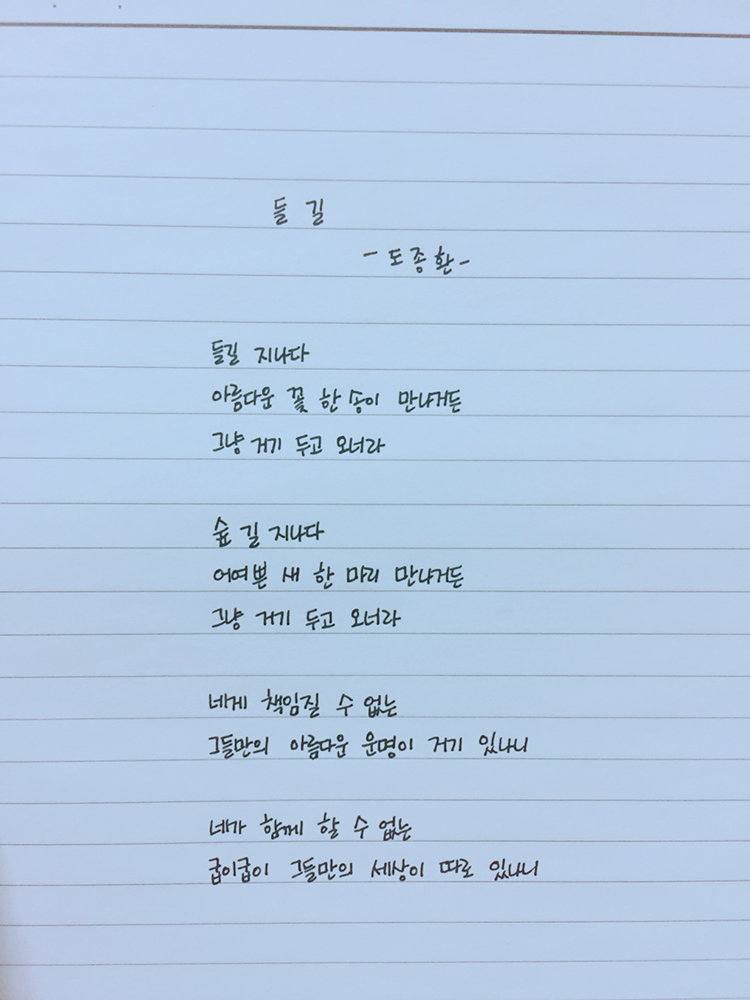 들 길
- 도종환 -
들길 지나다
아름다운 꽃 한 송이 만나거든
그냥 거기 두고 오너라
숲 길 지나다
어여쁜 새 한 마리 만나거든
그냥 거기 두고 오너라
네게 책임질 수 없는
그들만의 아름다운 운명이 거기 있나니
네가 함께 할 수 없는
굽이굽이 그들만의 세상이 따로 있나니